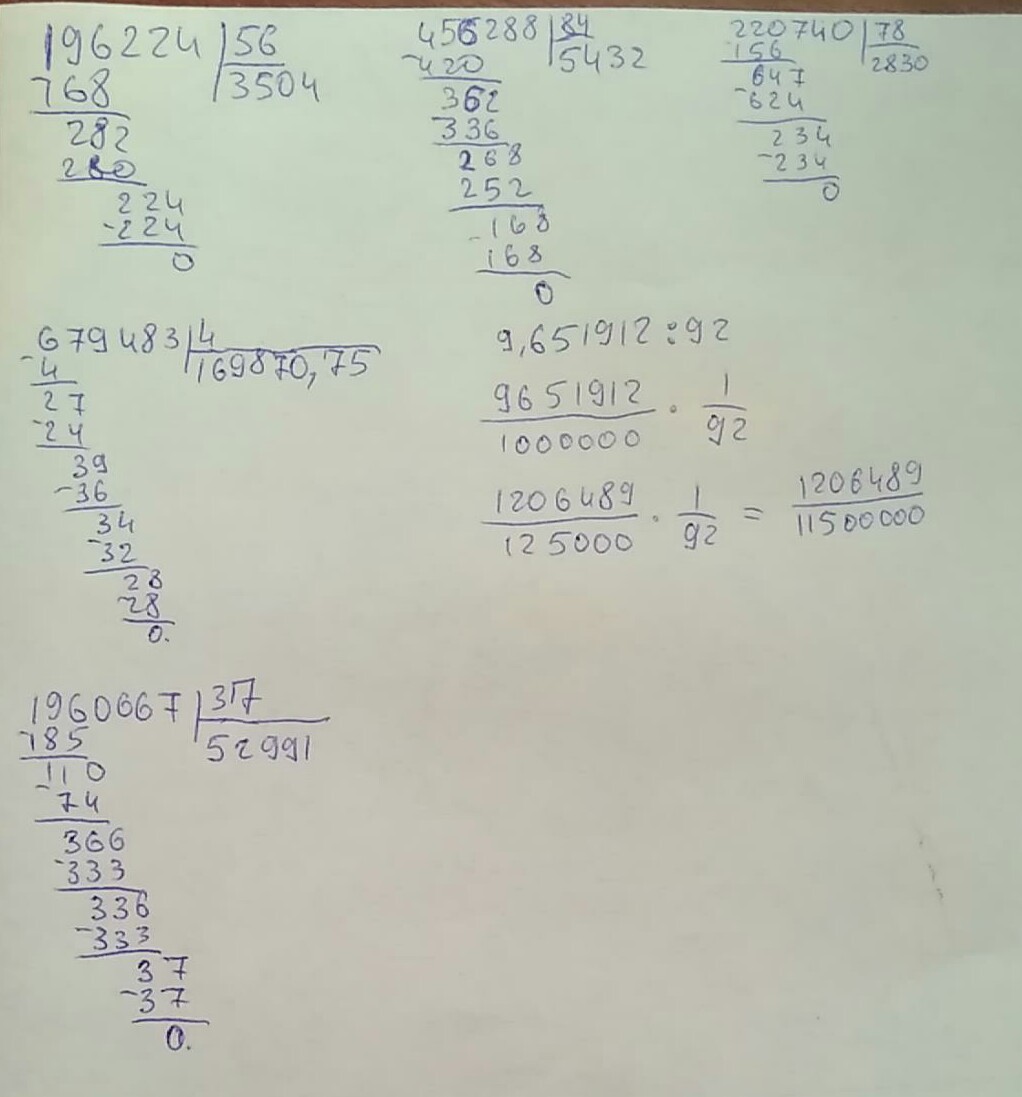 196224 | 56
-168 3504
282
280
224
-224
0
456288 | 84
-420 5432
362
-336
268
252
-168
168
0
220740 | 78
-156 2830
647
-624
234
-234
0
679483 | 4
-4 169870,75
27
-24
39
-36
34
-32
28
-28
0.
9,651912 : 92
9651912/1000000 · 1/92
1206489/125000 · 1/92 = 1206489/11500000
1960667 | 37
-185 52991
110
-74
366
-333
336
-333
37
-37
0.